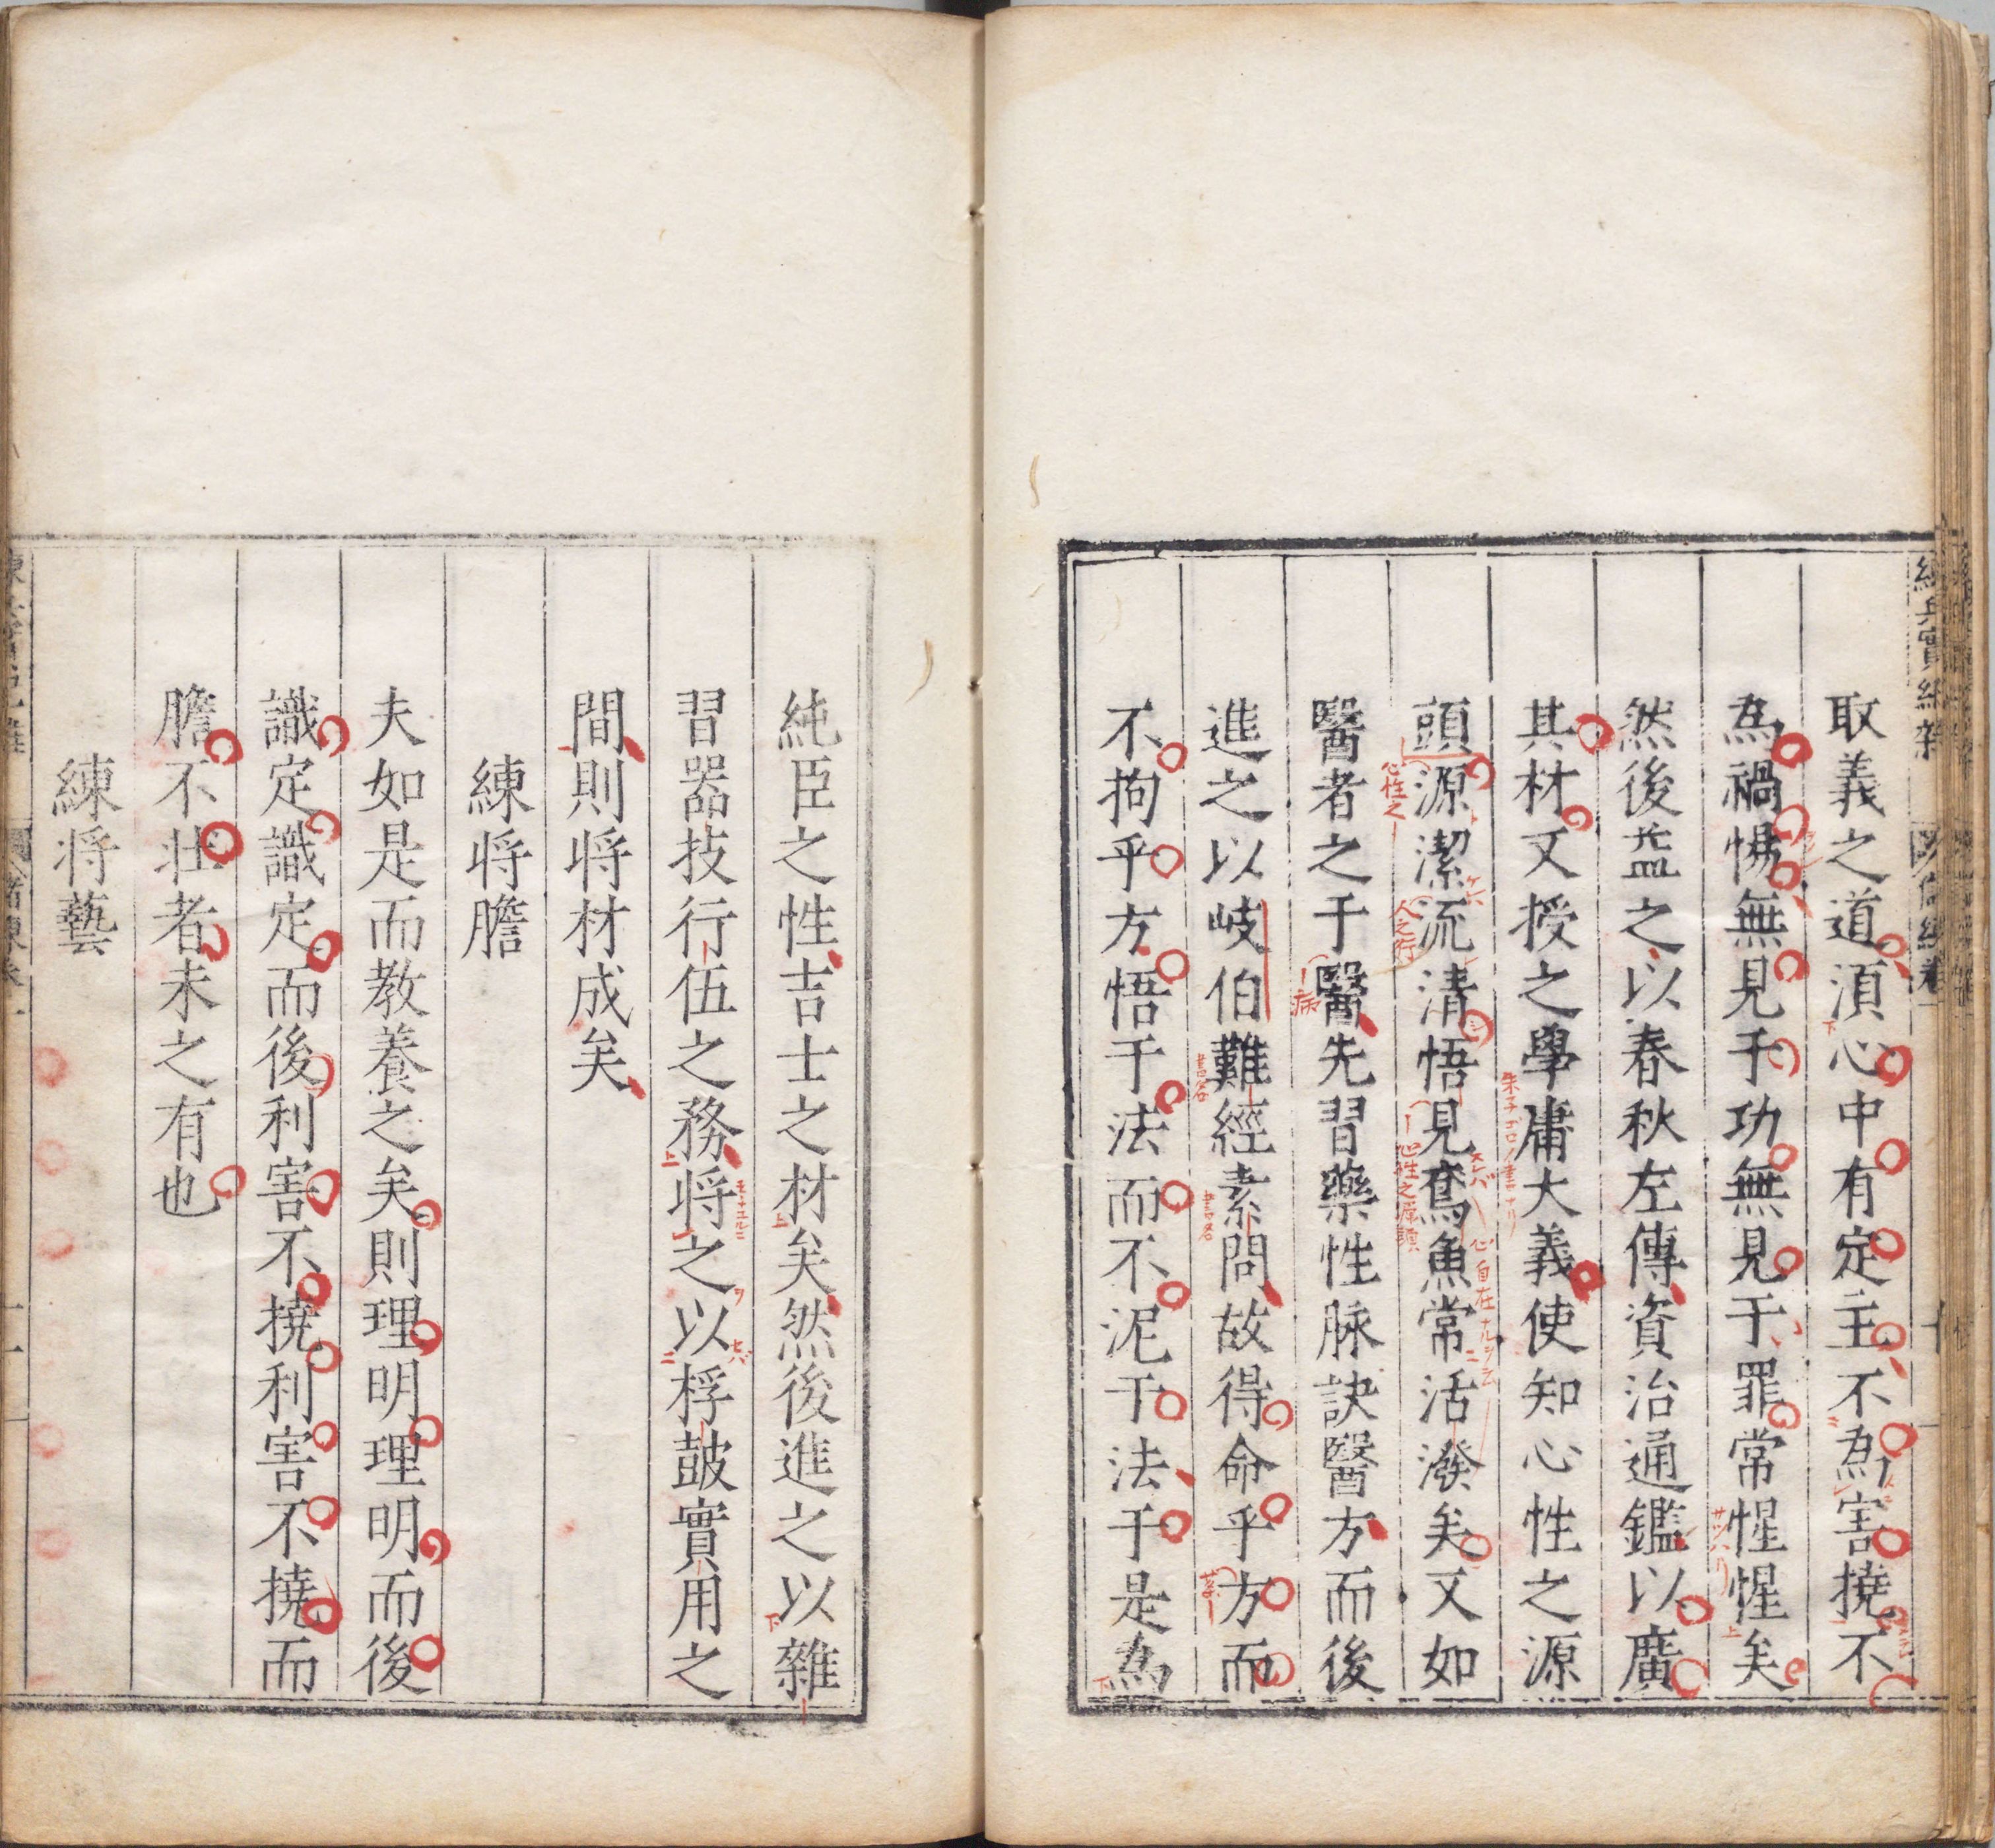 取義之道須心中有定主不為害撓不
為禍怵無見于功無見于罪常惺惺矣
然後益之以春秋左傳資治通鑑以廣
其材又授之學庸大義使知心性之源
頭源潔流清悟見鳶魚常活潑矣又如
醫者之于醫先習藥性脉訣醫方而後
進之以岐伯難經素問故得命乎方而
不拘乎方悟于法而不泥于法于是為
純臣之性吉士之材矣然後進之以雜
習器技行伍之務將之以桴鼓實用之
間則将材成矣
練将膽
夫如是而教養之矣則理明理明而後
識定識定而後利害不撓利害不撓而
膽不壮者未之有也
練将藝